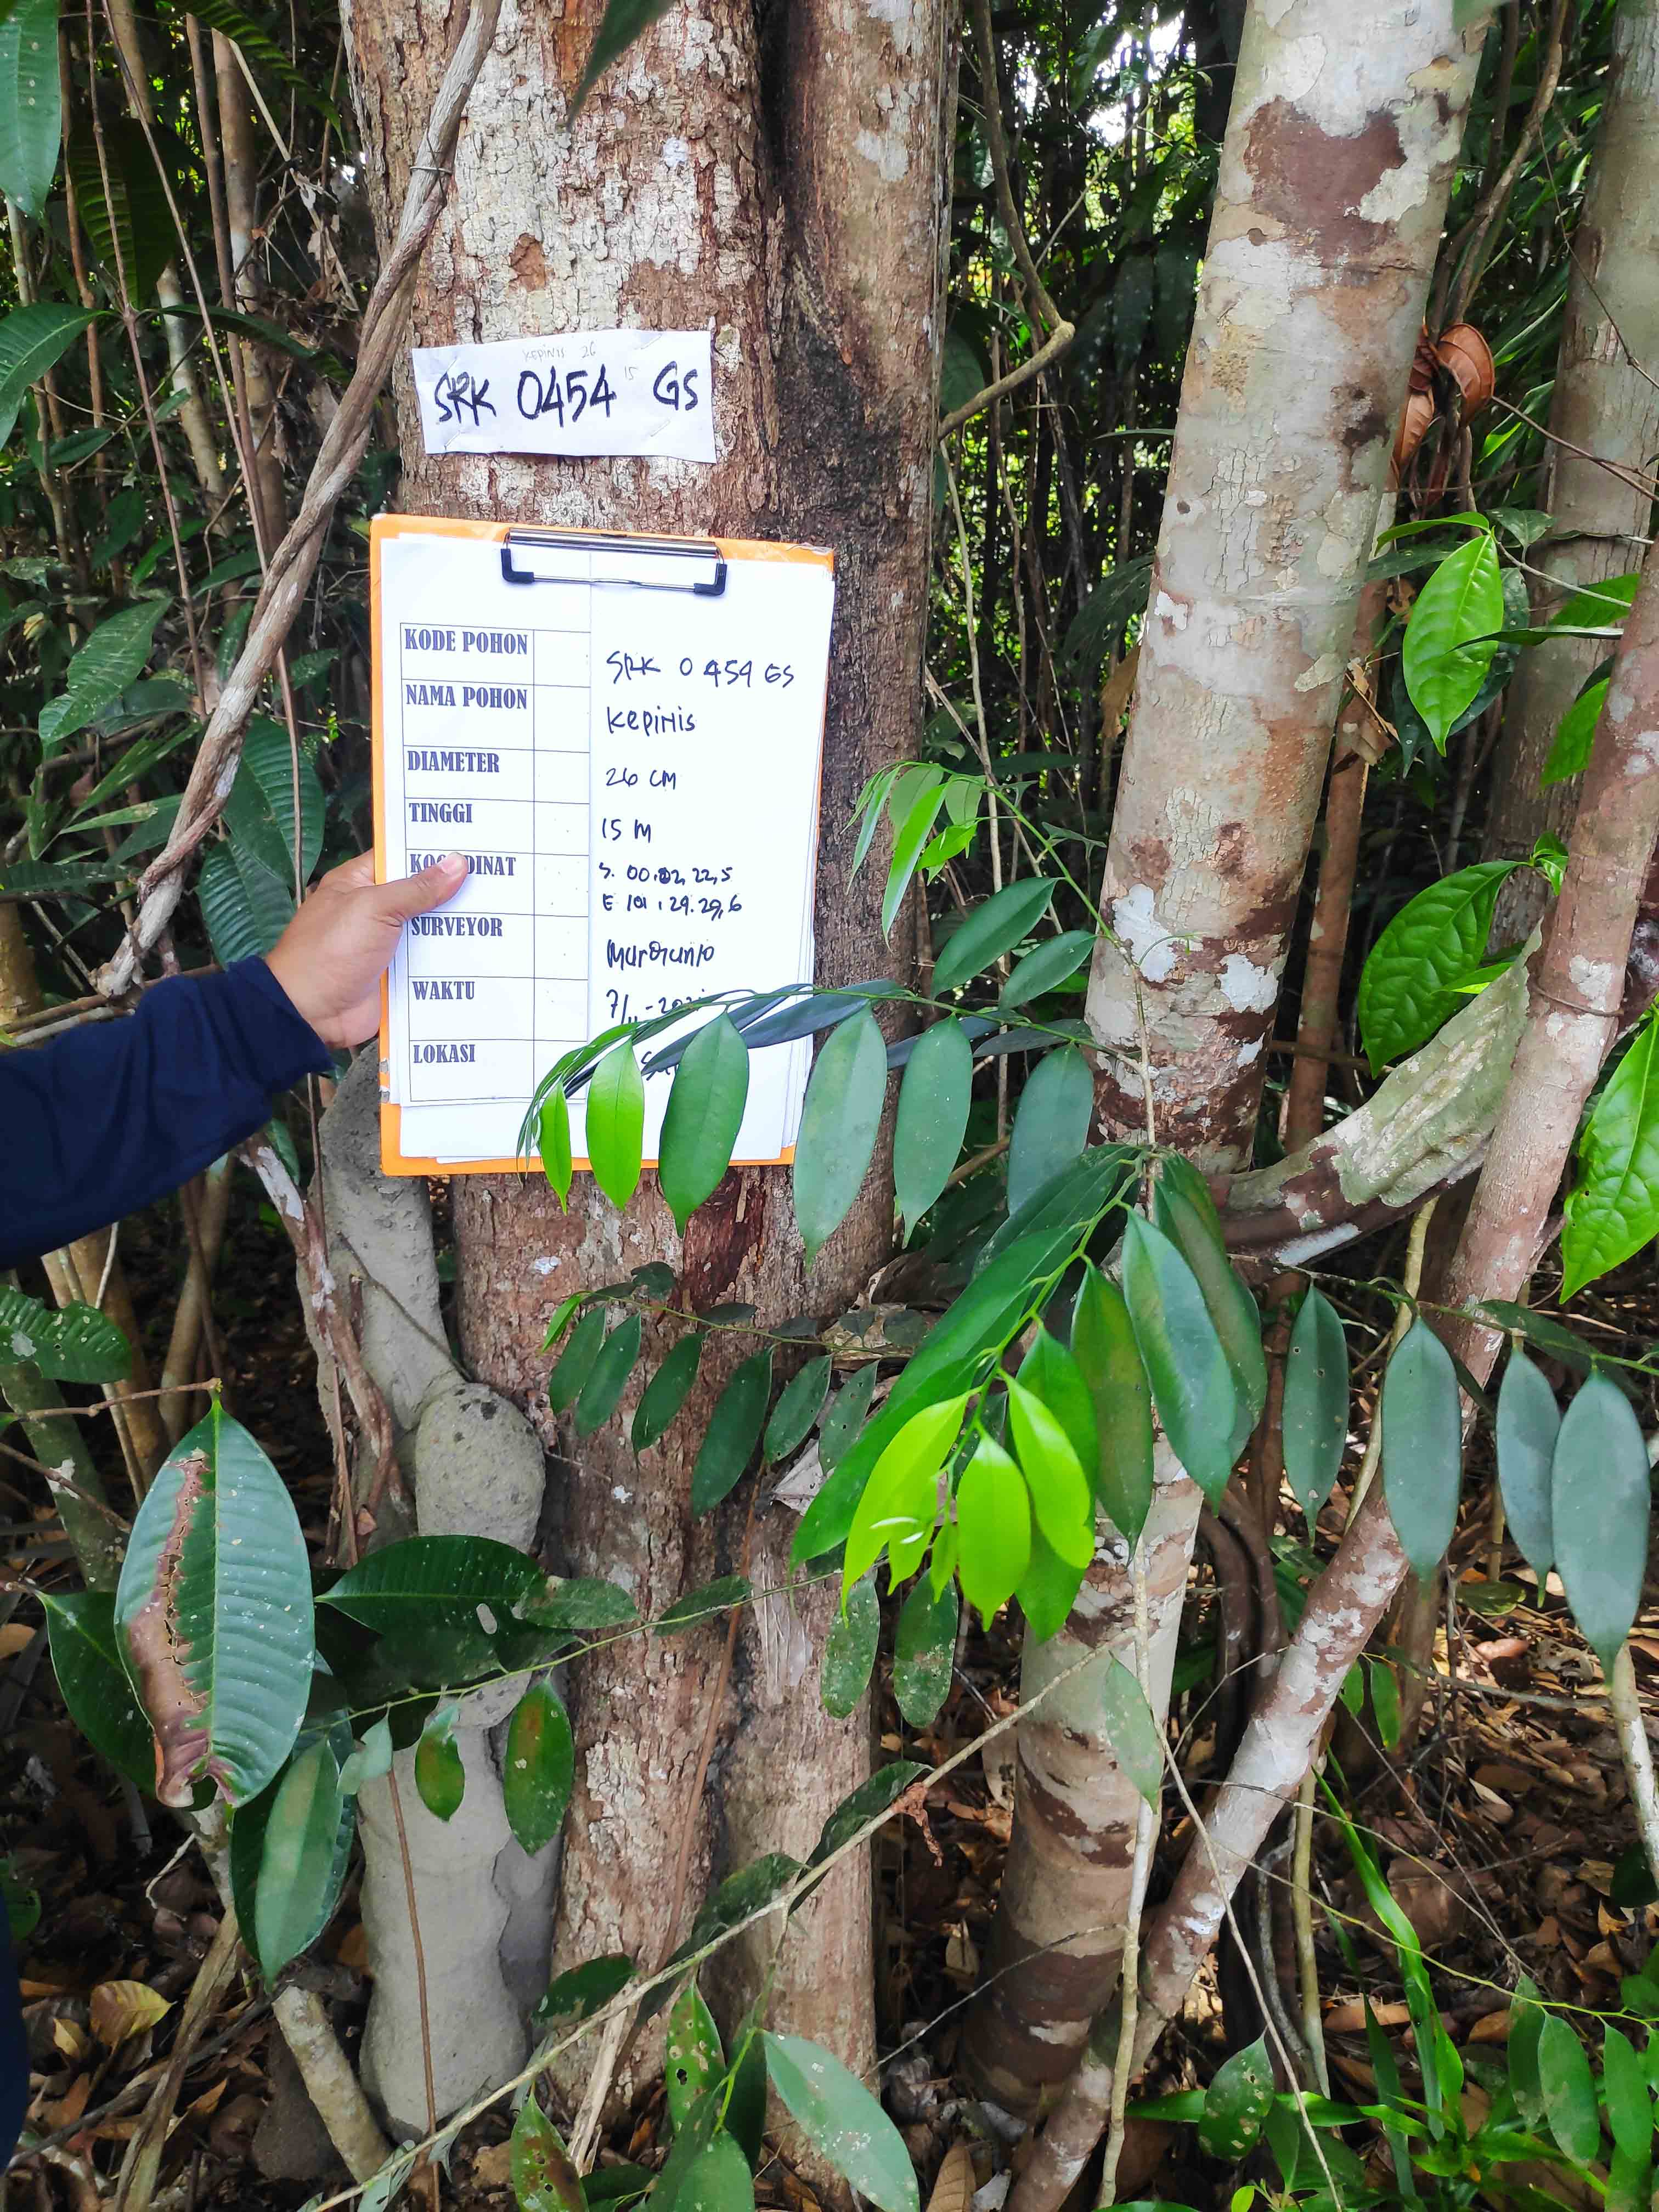 KEPINIS 26
15
SRK 0454 GS
KODE POHON SRK 0454 GS
NAMA POHON Kepinis
DIAMETER 26 CM
TINGGI 15 M
KOORDINAT S. 00.02, 22,5
E 101, 29. 29,6
SURVEYOR
WAKTU 7/11
LOKASI